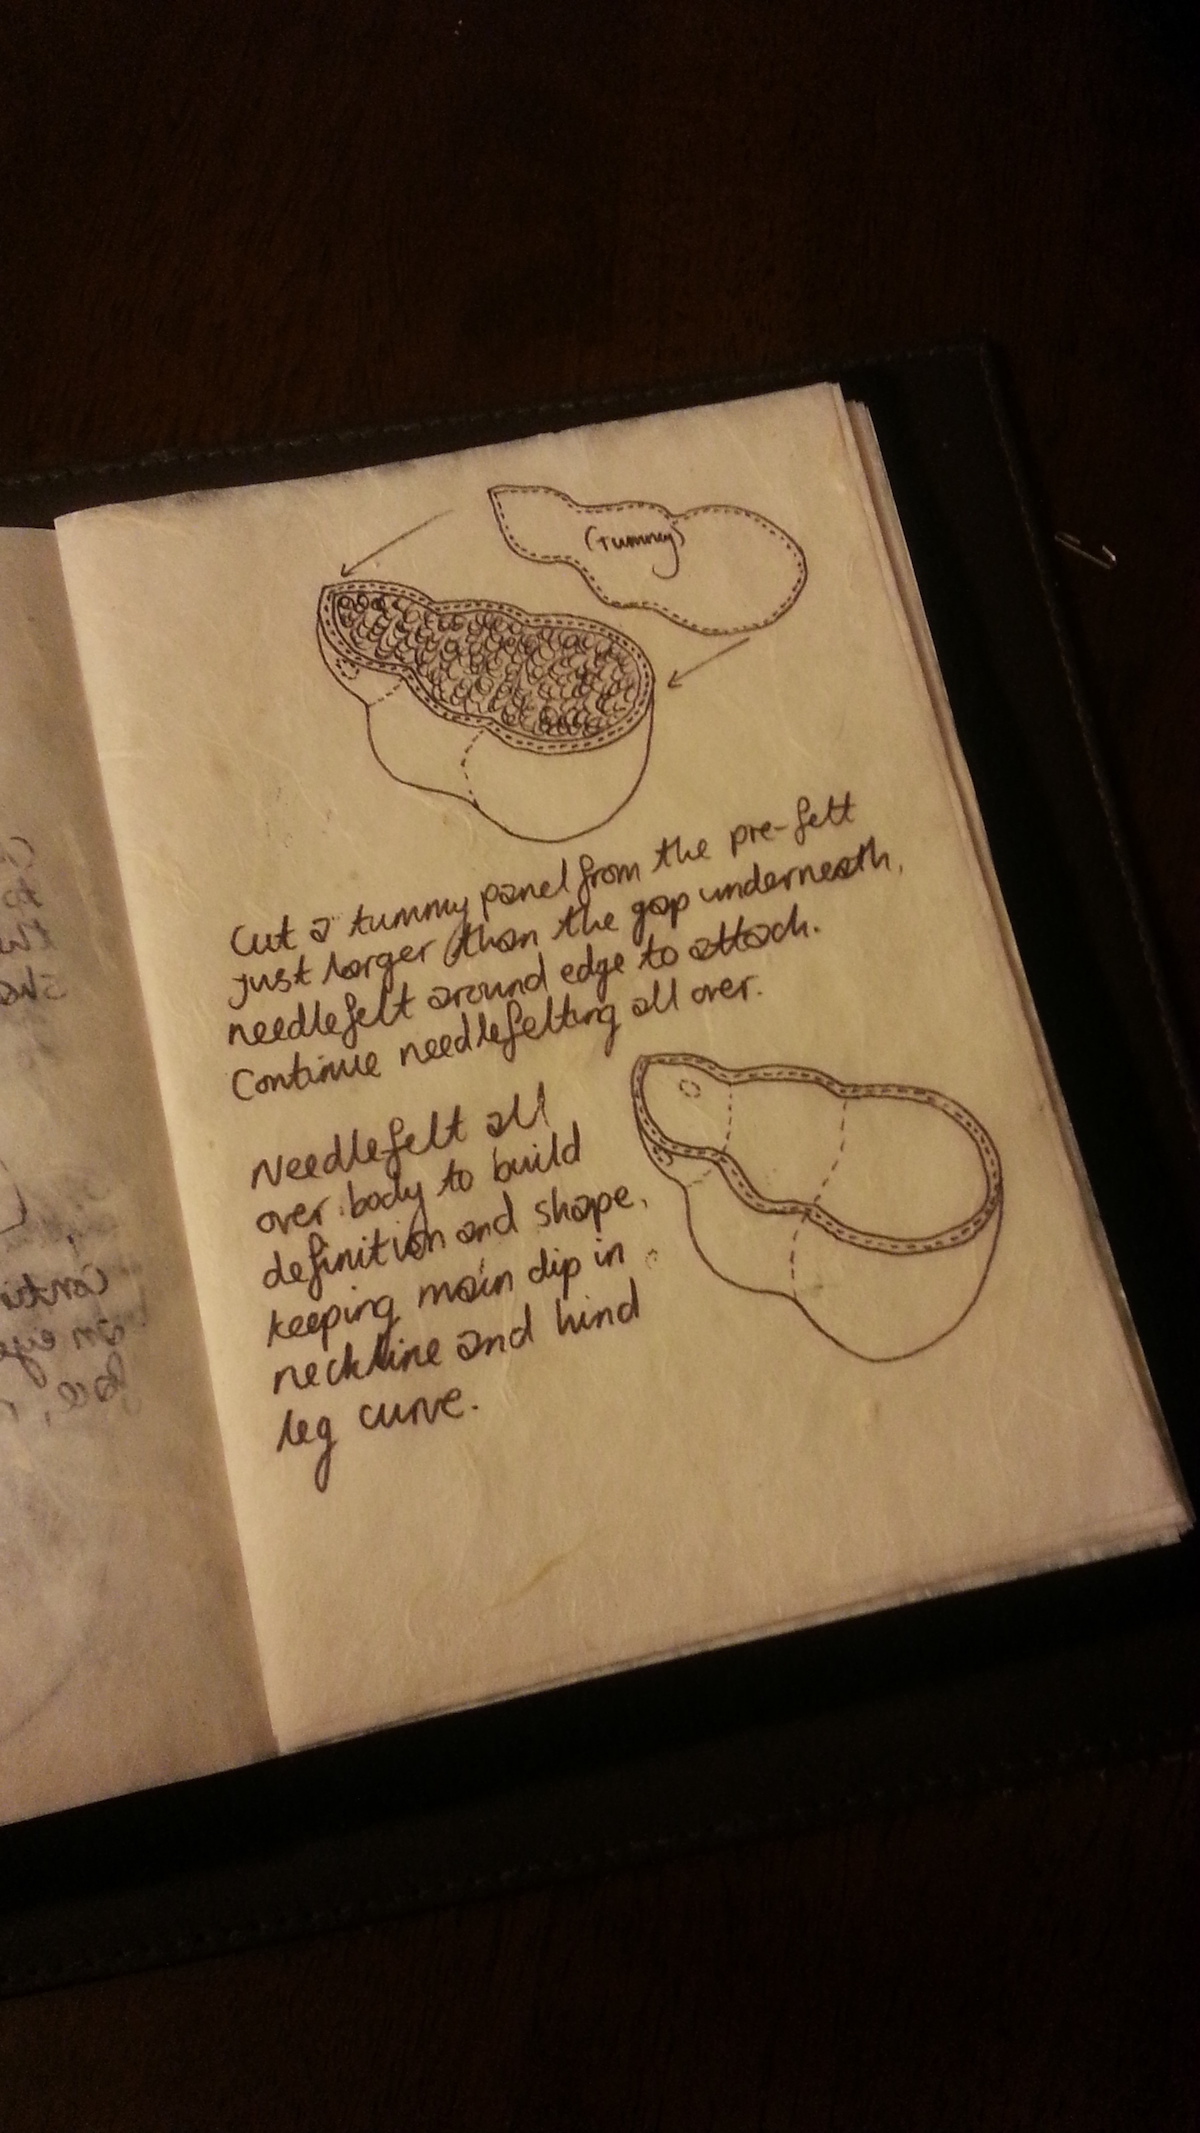 (Tummy)
Cut a tummy panel from the pre-felt
just larger than the gap underneath,
needlefelt around edge to attach.
Continue needlefelting all over.
Needlefelt all
over body to build
definition and shape,
keeping main dip in
neckline and hind
leg curve.